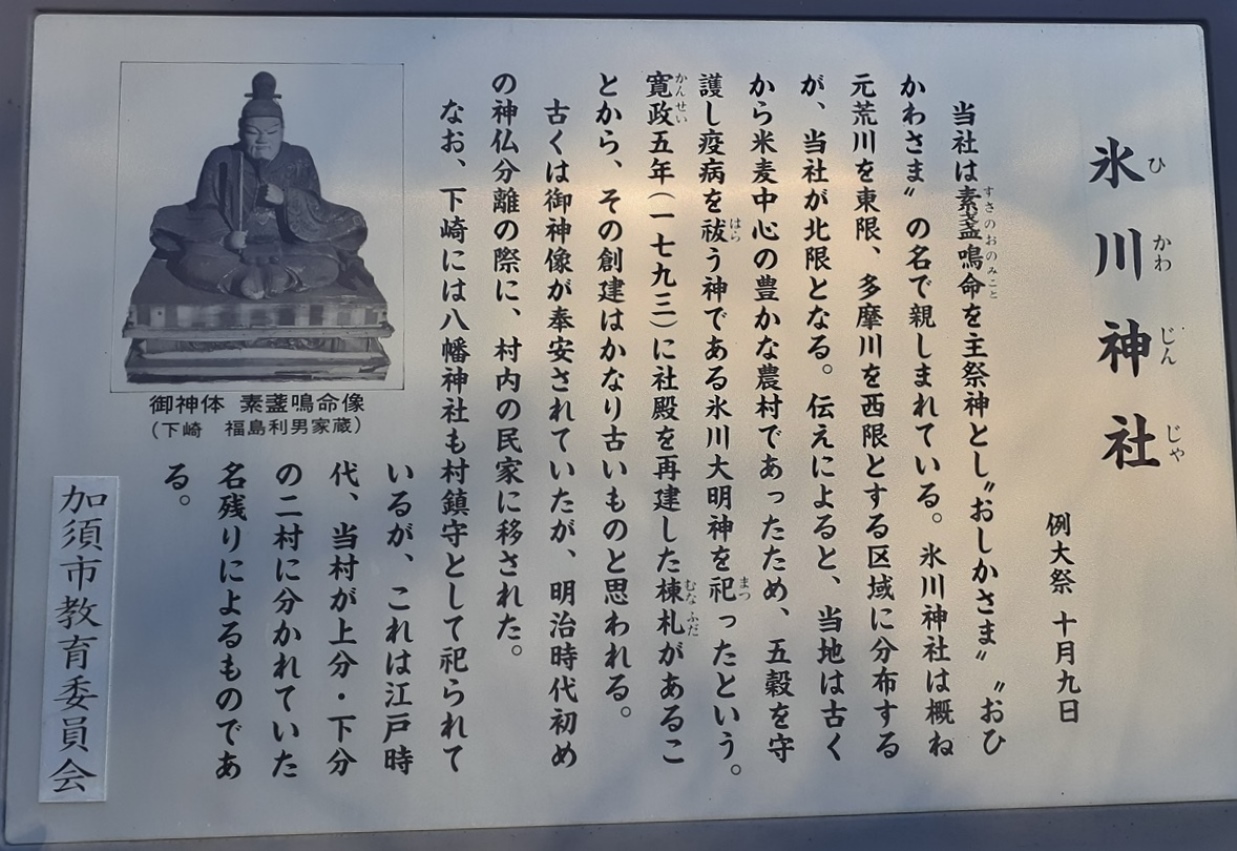 氷川神社
ひかわじんじゃ
例大祭 十月九日
当社は素盞鳴命を主祭神とし〝おしかさま〟〝おひ
すさのおのみこと
かわさま〟の名で親しまれている。氷川神社は概ね
元荒川を東限、多摩川を西限とする区域に分布する
が、当社が北限となる。伝えによると、当地は古く
から米麦中心の豊かな農村であったため、五穀を守
護し疫病を祓う神である氷川大明神を祀ったという。
はら
まつ
寛政五年(一七九三)に社殿を再建した棟札があるこ
かんせい
むなふだ
とから、その創建はかなり古いものと思われる。
古くは御神像が奉安されていたが、明治時代初め
の神仏分離の際に、村内の民家に移された。
なお、下崎には八幡神社も村鎮守として祀られて
いるが、これは江戸時
代、当村が上分・下分
の二村に分かれていた
名残りによるものであ
る。
御神体 素盞鳴命像
(下崎 福島利男家蔵)
加須市教育委員会